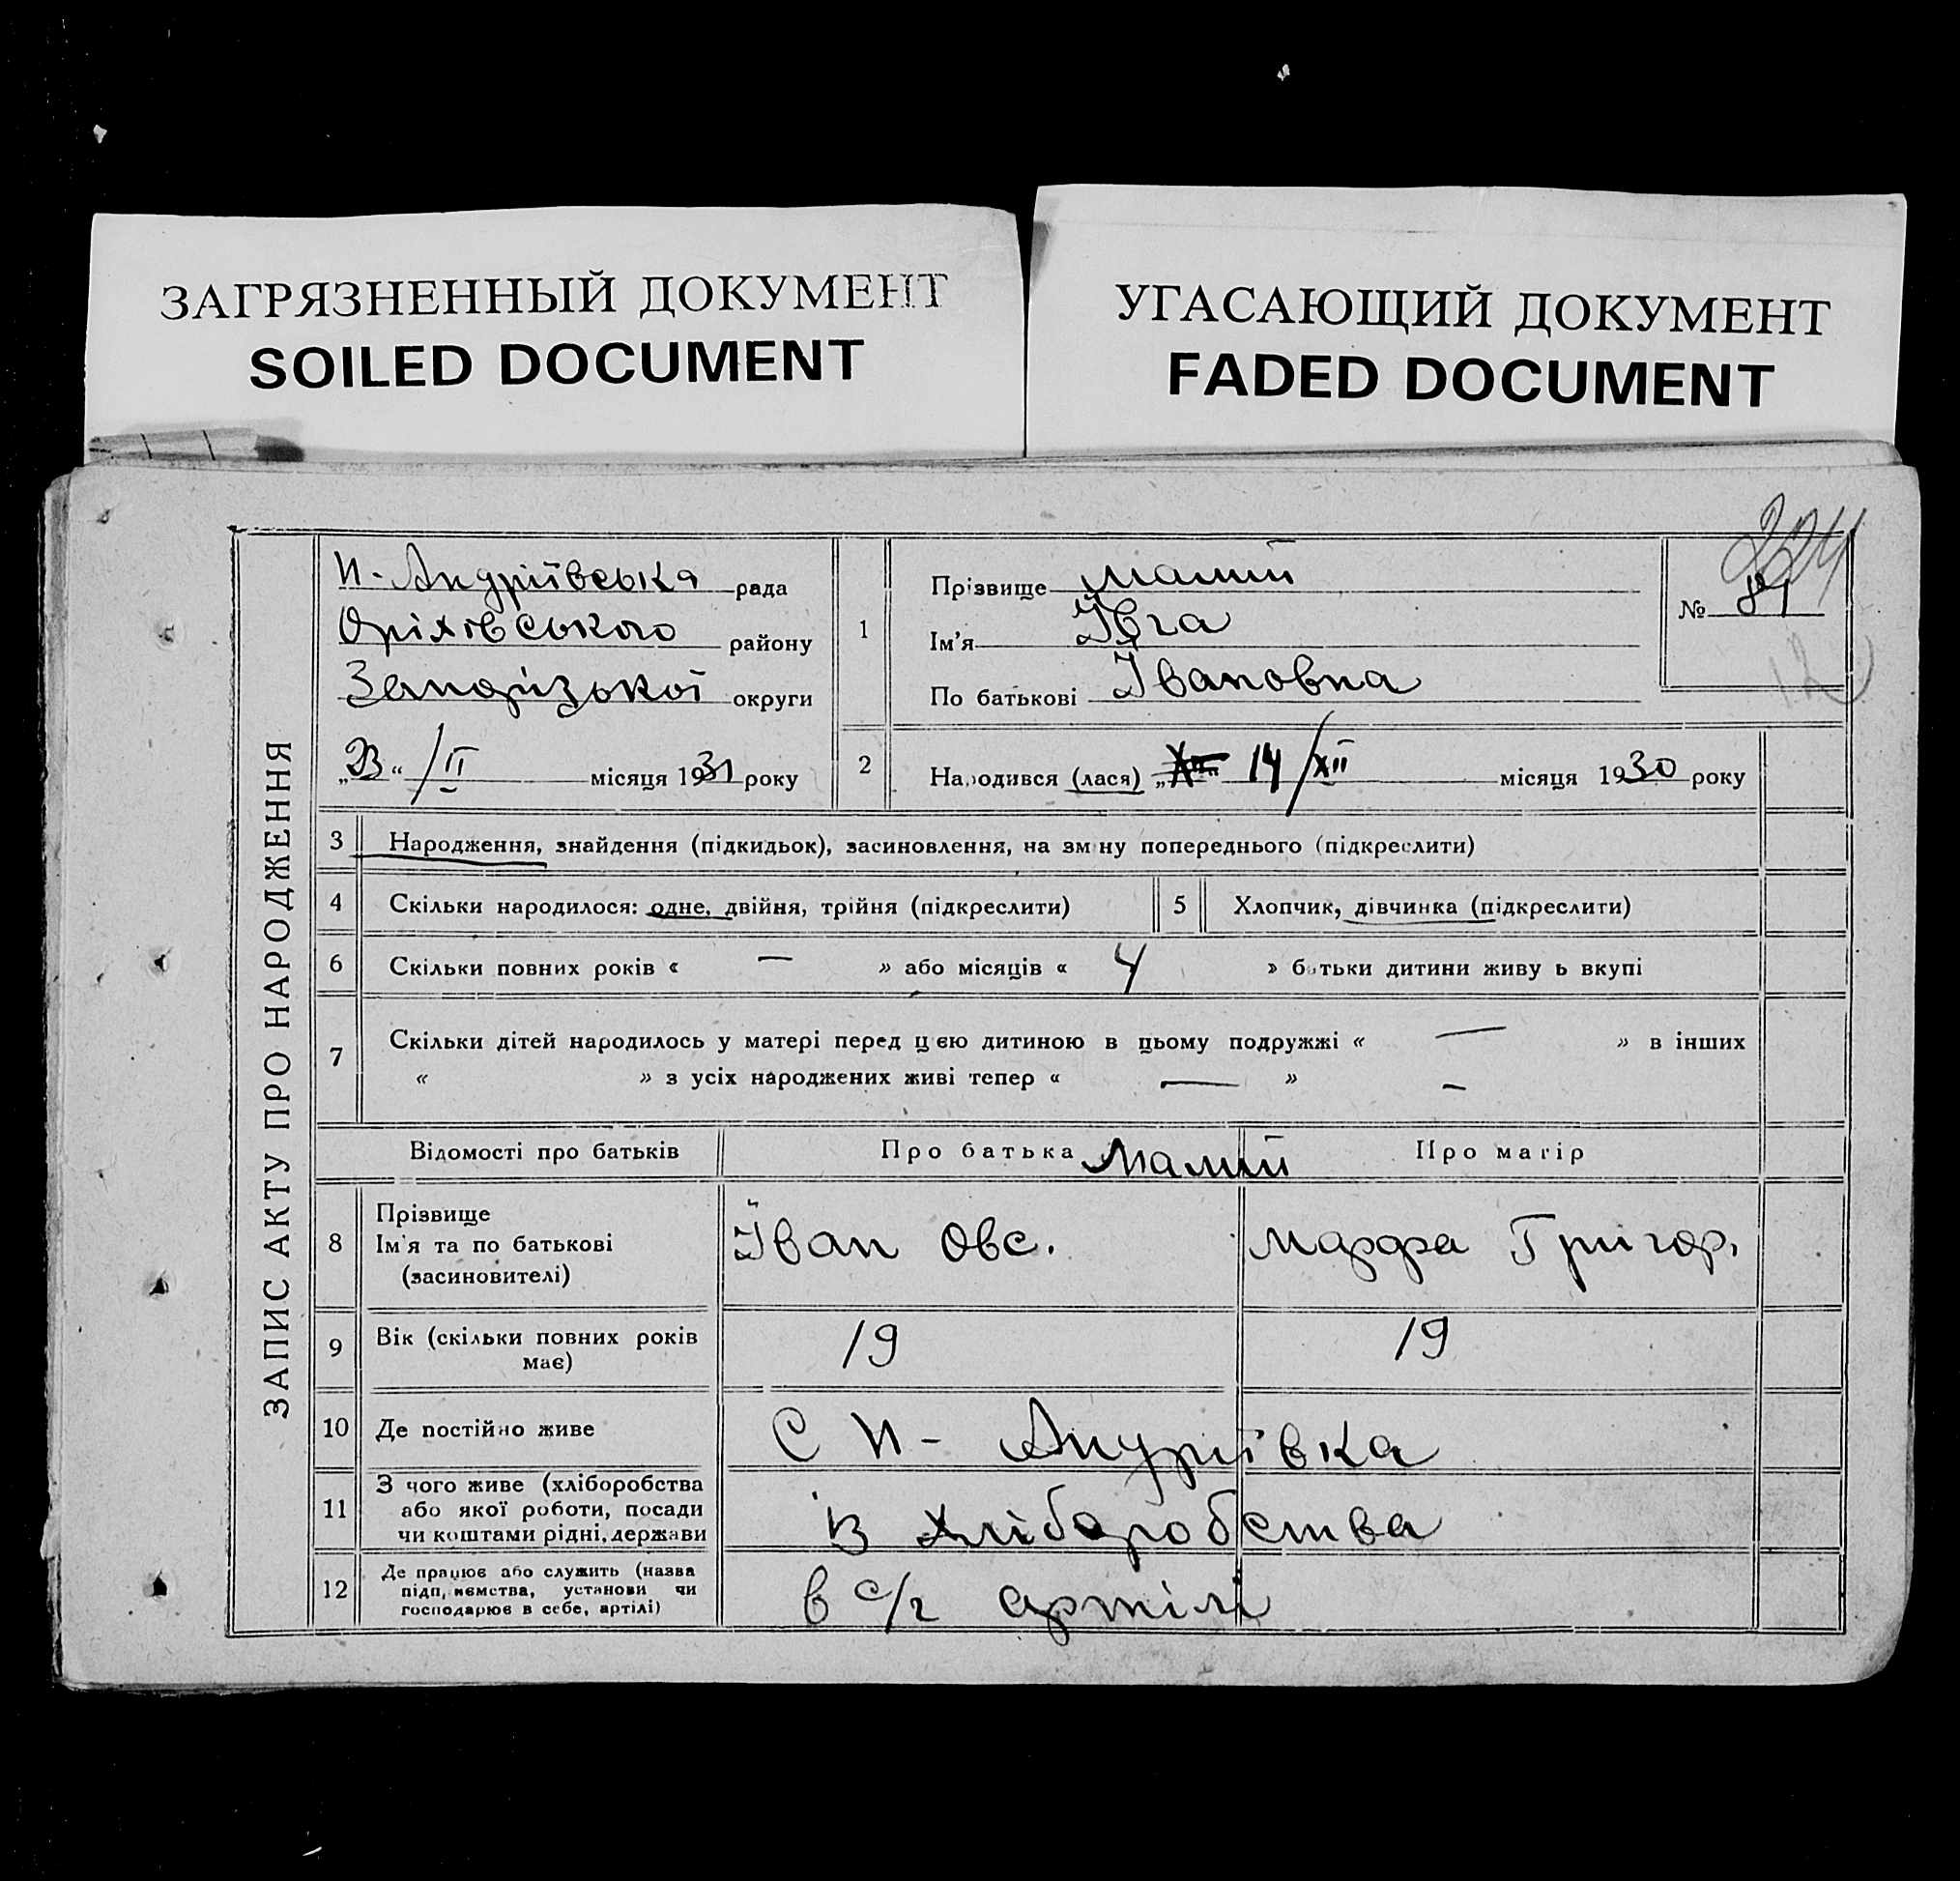 ЗАГРЯЗНЕННЫЙ ДОКУМЕНТ
SOILED DOCUMENT
УГАСАЮЩИЙ ДОКУМЕНТ
FADED DOCUMENT
ЗАПИС АКТУ ПРО НАРОДЖЕННЯ
Н-Андріївська рада
Оріхівського району
Запорізької округи
„23“ /II місяця 1931 року
1
Прізвище Малий
Ім'я Івга
По батькові Івановна
№ 81
2
Народився (лася) „ “ 14/XII місяця 1930 року
3 Народження, знайдення (підкидьок), засиновлення, на зміну попереднього (підкреслити)
4 Скільки народилося: одне, двійня, трійня (підкреслити)
5 Хлопчик, дівчинка (підкреслити)
6 Скільки повних років « — » або місяців « 4 » батьки дитини живу ь вкупі
7 Скільки дітей народилось у матері перед цею дитиною в цьому подружжі « — » в інших
« » з усіх народжених живі тепер « — » —
Відомості про батьків Про батька Малий Про матір
8 Прізвище
Ім'я та по батькові
(засиновителі)
Іван Овс. Марфа Григор.
9 Вік (скільки повних років
має)
19 19
10 Де постійно живе С Н- Андріївка
11 З чого живе (хліборобства
або якої роботи, посади
чи коштами рідні, держави
із хліборобства
12 Де працює або служить (назва
підп, иємства, установи чи
господарює в себе, артілі)
в с/г артілі